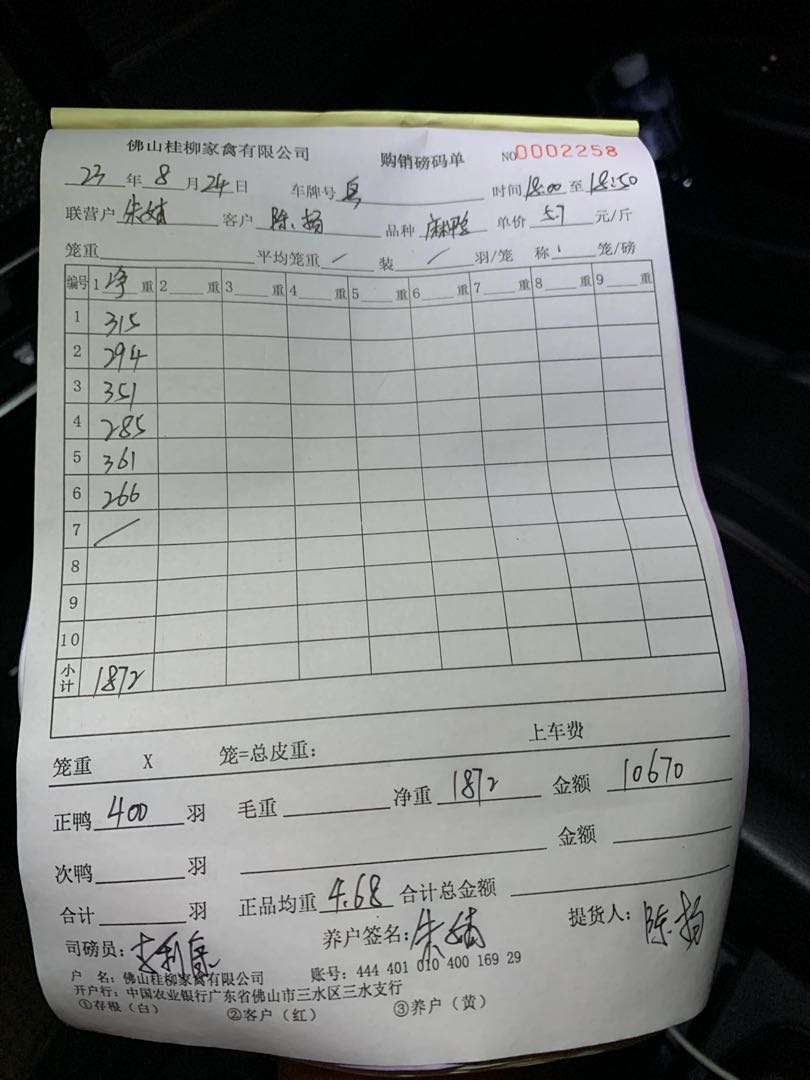 佛山桂柳家禽有限公司 购销磅码单 NO0002258
23年8月24日 车牌号 时间18:00至18:50
联营户朱婧 客户陈扬 品种麻鸭 单价5.7元/斤
笼重 平均笼重/ 装/羽/笼 称 笼/磅
编号 1净重 2重 3重 4重 5重 6重 7重 8重 9重
1 315
2 294
3 351
4 285
5 361
6 266
7 /
8
9
10
小计 1872
笼重 X 笼=总皮重: 上车费
正鸭400羽 毛重 净重1872 金额10670
次鸭 羽 金额
合计 羽 正品均重4.68 合计总金额
司磅员: 养户签名:朱婧 提货人:陈扬
户 名:佛山桂柳家禽有限公司 账号:444 401 010 400 169 29
开户行:中国农业银行广东省佛山市三水区三水支行
①存根(白) ②客户(红) ③养户(黄)